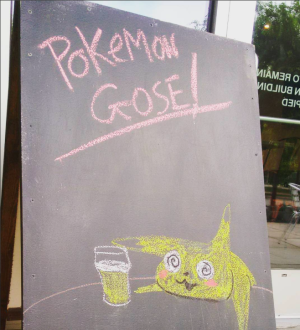 PoKeMoN
GOSE!
O REMAIN
N BUILDIN
PIED